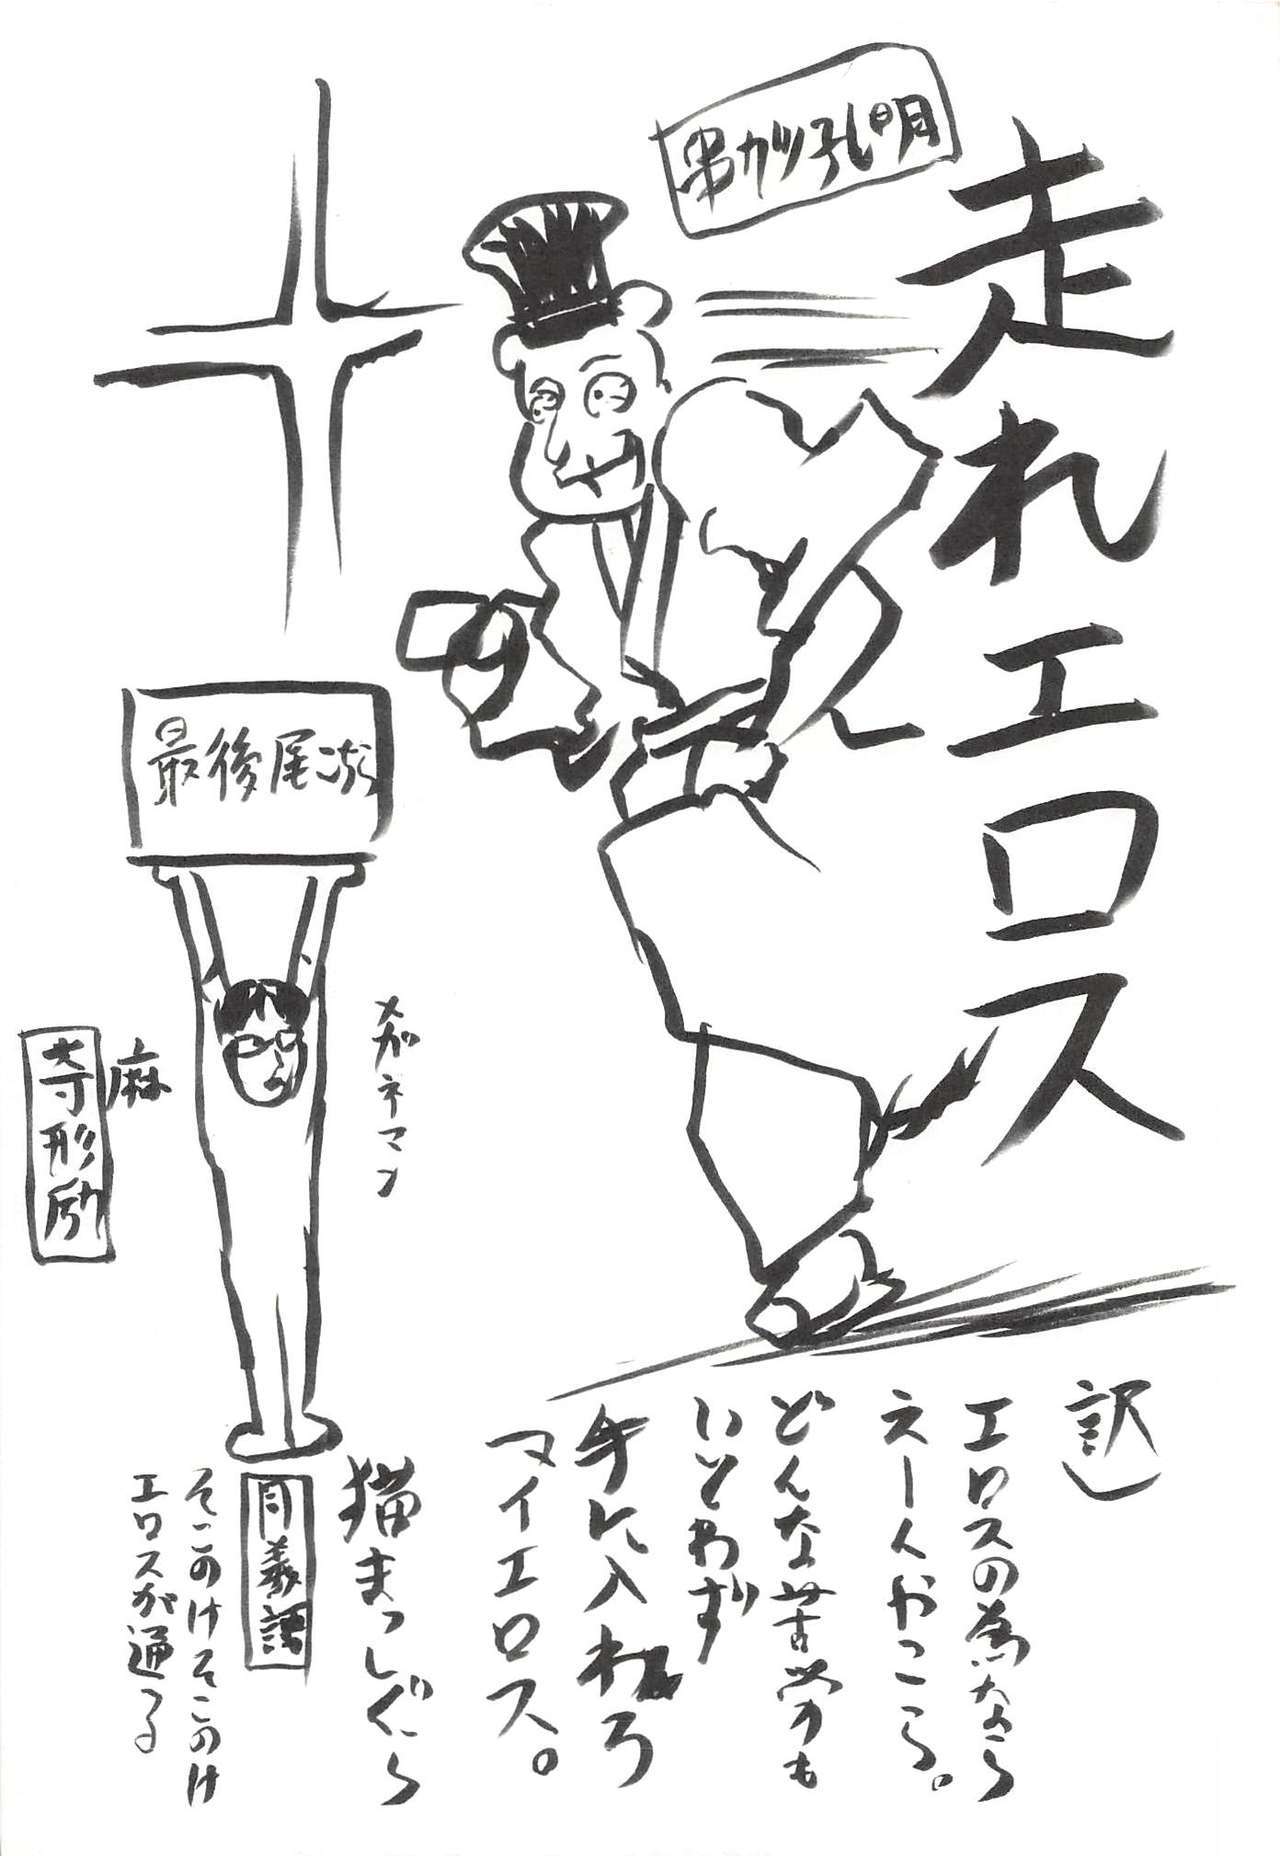 走れエロス
串カツ孔明
訳)
エロスの為なら
えーんやこら。
どんな苦労も
いとわず
手に入れろ
マイエロス。
最後尾
メガネマン
麻
寺形励
猫まっしぐら
同義語
そこのけそこのけ
エロスが通る